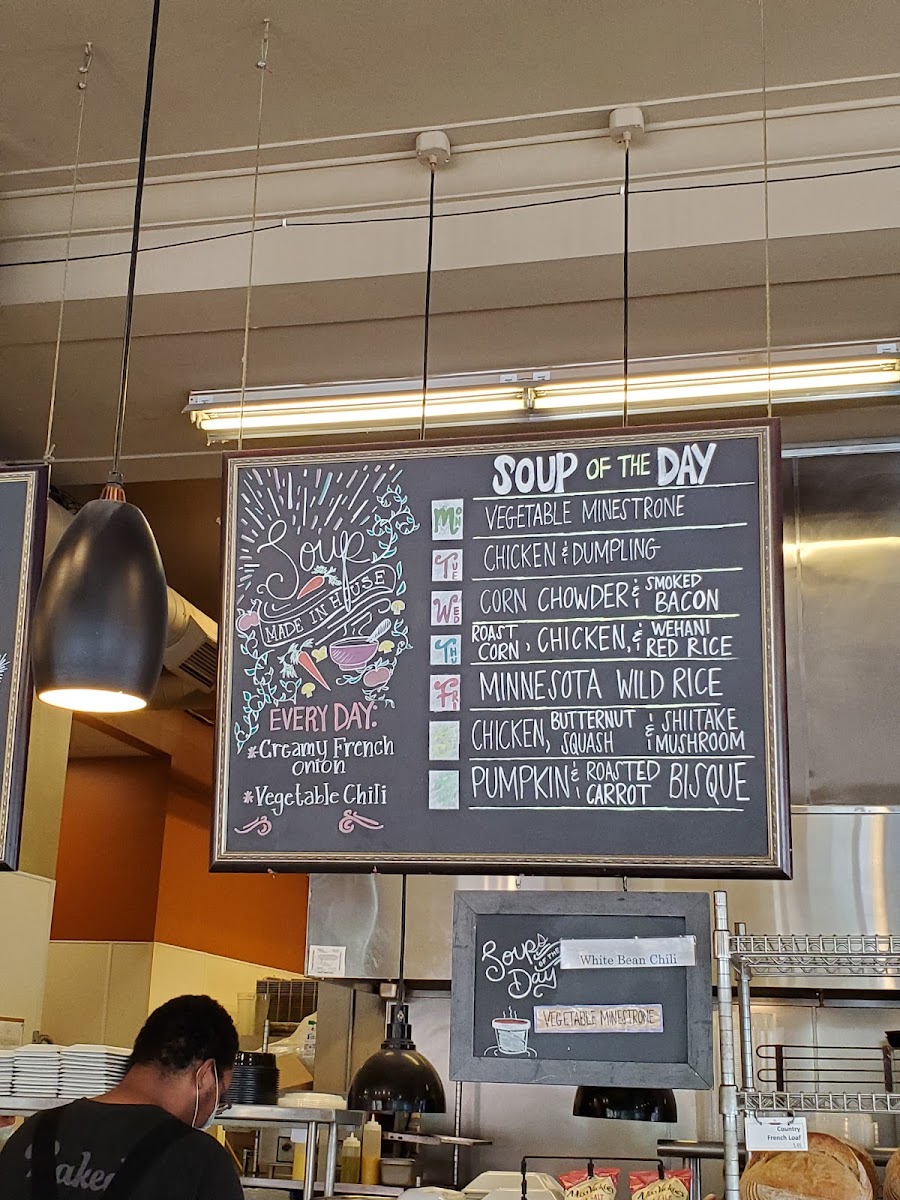 Soup
MADE IN HOUSE
EVERY DAY:
*Creamy French
onion
*Vegetable Chili
SOUP OF THE DAY
MON VEGETABLE MINESTRONE
TUE CHICKEN & DUMPLING
WED CORN CHOWDER & SMOKED BACON
THU ROAST CORN, CHICKEN, & WEHANI RED RICE
FRI MINNESOTA WILD RICE
CHICKEN, BUTTERNUT SQUASH & SHIITAKE MUSHROOM
PUMPKIN & ROASTED CARROT BISQUE
Soups OF THE Day
White Bean Chili
VEGETABLE MINESTRONE
Country
French Loaf
Miss Vickie's
Miss Vickie's